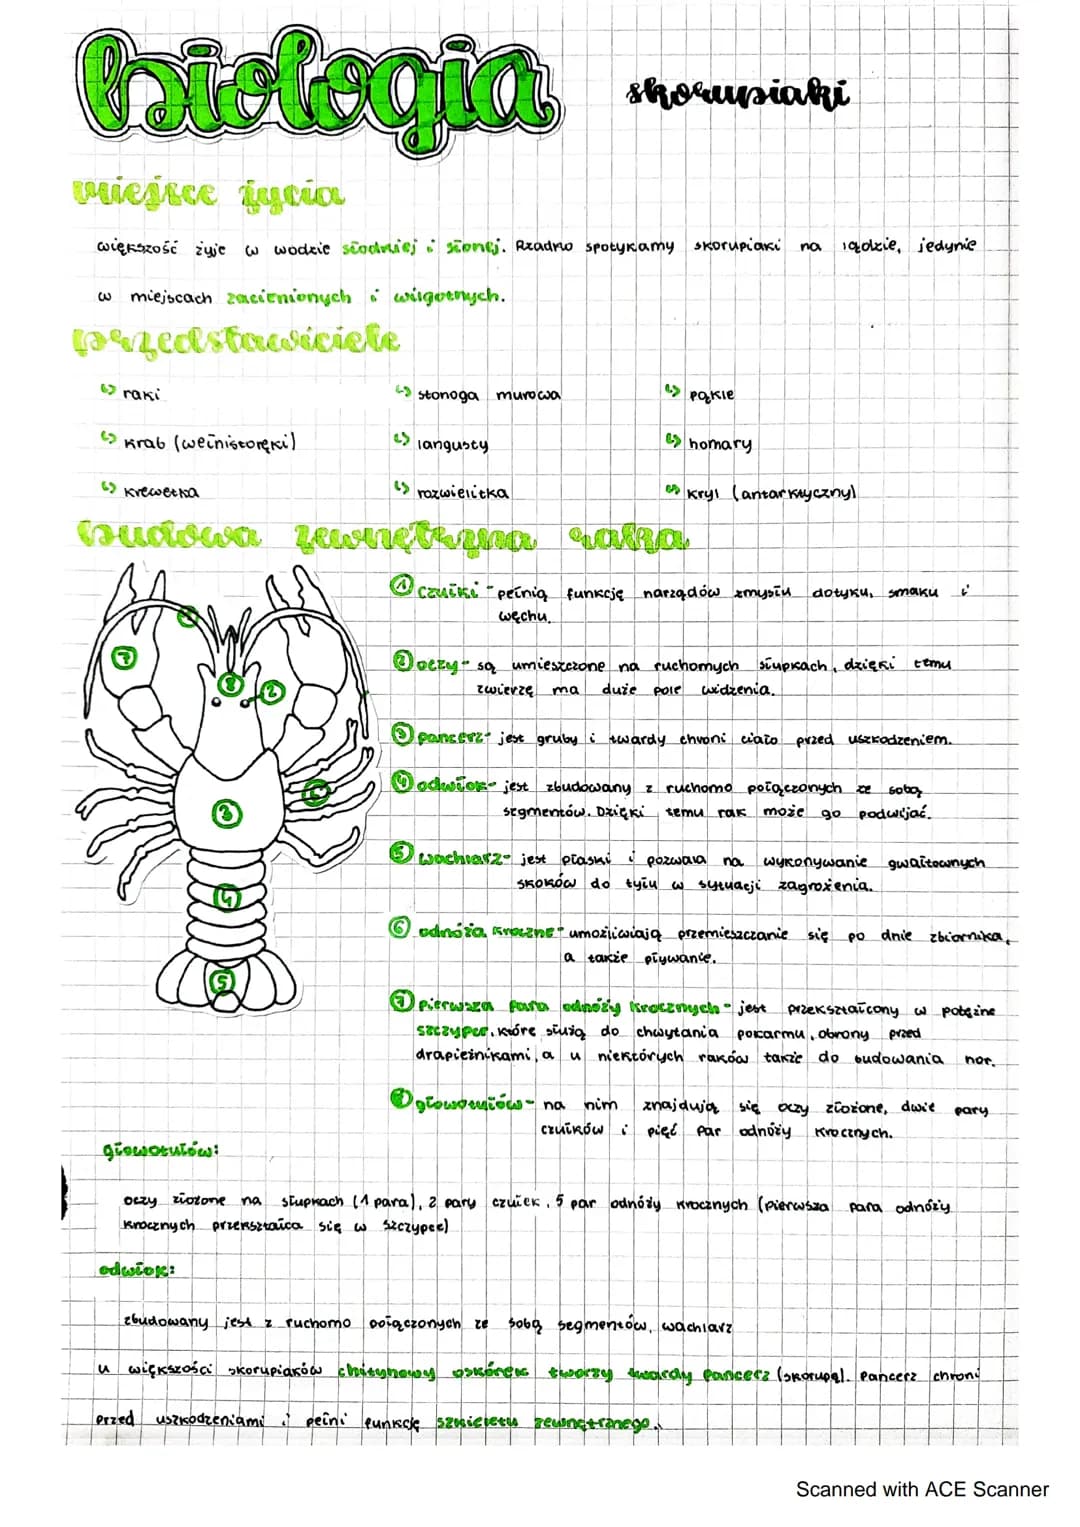 biologia
skorupiaki
miejsce życia
większość żyje w wodzie słodniej i słonej. Rzadno spotykamy skorupiaki na lądzie, jedynie
w miejscach zacienionych i wilgotnych.
przedstawiciele
↳ raki
↳ stonoga murowa
↳ pąkle
↳ krab (wełnistoręki)
↳ langusty
↳ homary
↳ krewetka
↳ rozwielitka
↳ kryl (antarktyczny)
budowa zewnętrzna raka
① czułki - pełnią funkcję narządów zmysłu dotyku, smaku i
węchu.
② oczy - są umieszczone na ruchomych słupkach, dzięki temu
zwierzę ma duże pole widzenia.
③ pancerz - jest gruby i twardy chroni ciało przed uszkodzeniem.
④ odwłok - jest zbudowany z ruchomo połączonych ze sobą
segmentów. Dzięki temu rak może go podwijać.
⑤ wachlarz - jest płaski i pozwala na wykonywanie gwałtownych
skoków do tyłu w sytuacji zagrożenia.
⑥ odnóża kroczne - umożliwiają przemieszczanie się po dnie zbiornika,
a także pływanie.
⑦ pierwsza para odnóży krocznych - jest przekształcony w potężne
szczypce, które służą do chwytania pokarmu, obrony przed
drapieżnikami, a u niektórych raków także do budowania nor.
⑧ głowotułów - na nim znajdują się oczy złożone, dwie pary
czułków i pięć par odnóży krocznych.
7
1
8
2
3
6
4
5
głowotułów:
oczy złożone na słupkach (1 para), 2 pary czułek, 5 par odnóży krocznych (pierwsza para odnóży
krocznych przekształca się w szczypce)
odwłok:
zbudowany jest z ruchomo połączonych ze sobą segmentów, wachlarz
u większości skorupiaków chitynowy oskórek tworzy twardy pancerz (skorupa). Pancerz chroni
przed uszkodzeniami i pełni funkcję szkieletu zewnętrznego.
Scanned with ACE Scanner